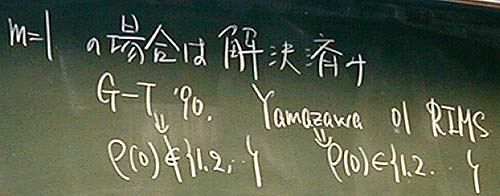 m=1 の場合は解決済み
G-T '90. Yamazawa 01 RIMS
ρ(0)∉{1,2,..} ρ(0)∈{1,2...}